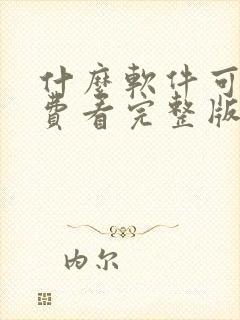 什麼軟件可
費看完整版
内尔